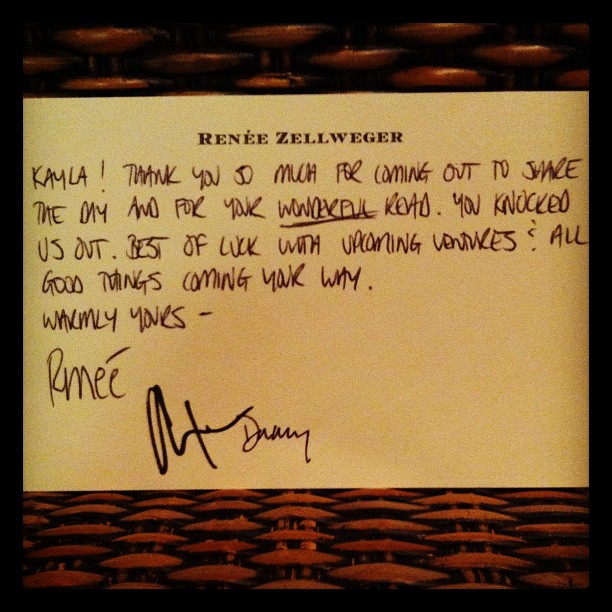 RENÉE ZELLWEGER
KAYLA! THANK YOU SO MUCH FOR COMING OUT TO SHARE
THE DAY AND FOR YOUR WONDERFUL READ. YOU KNOCKED
US OUT. BEST OF LUCK WITH UPCOMING VENTURES & ALL
GOOD THINGS COMING YOUR WAY.
WARMLY YOURS -
Renée
Danny